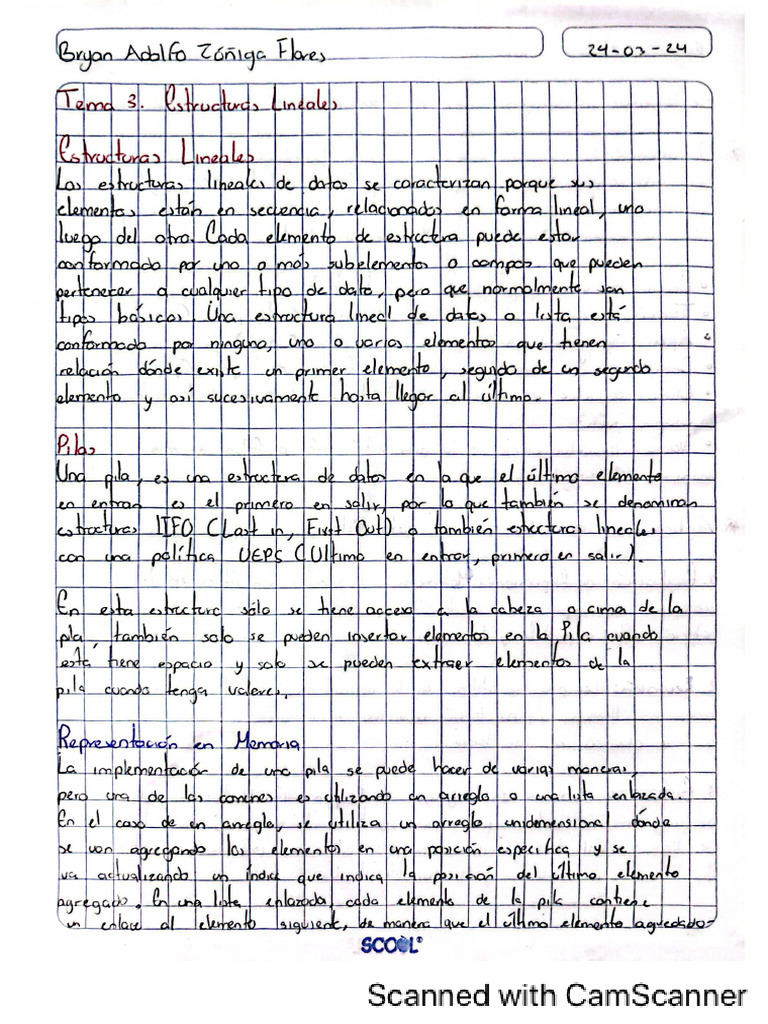 Bryan Adolfo Zúñiga Flores
24-03-24
Tema 3. Estructuras Lineales
Estructuras Lineales
Las estructuras lineales de datos se caracterizan porque sus
elementos están en secuencia, relacionados en forma lineal, uno
luego del otro. Cada elemento de estructura puede estar
conformado por uno o más subelementos o campos que pueden
pertenecer a cualquier tipo de dato, pero que normalmente son
tipos básicos. Una estructura lineal de datos o lista está
conformado por ninguno, uno o varios elementos que tienen
relación dónde existe un primer elemento, seguido de un segundo
elemento y así sucesivamente hasta llegar al último.
Pilas
Una pila, es una estructura de datos en la que el último elemento
en entrar es el primero en salir, por lo que también se denominan
estructuras LIFO (Last in, First Out) o también estructuras lineales
con una política UEPS (Ultimo en entrar, primero en salir).
En esta estructura sólo se tiene acceso a la cabeza o cima de la
pila, también solo se pueden insertar elementos en la Pila cuando
está tiene espacio y solo se pueden extraer elementos de la
pila cuando tenga valores.
Representación en Memoria
La implementación de una pila se puede hacer de varias maneras,
pero una de las comunes es utilizando un arreglo o una lista enlazada.
En el caso de un arreglo, se utiliza un arreglo unidimensional donde
se van agregando los elementos en una posición especifica y se
va actualizando un índice que indica la posición del último elemento
agregado. En una lista enlazada, cada elemento de la pila contiene
un enlace al elemento siguiente, de manera que el último elemento agregado
SCOOL
Scanned with CamScanner